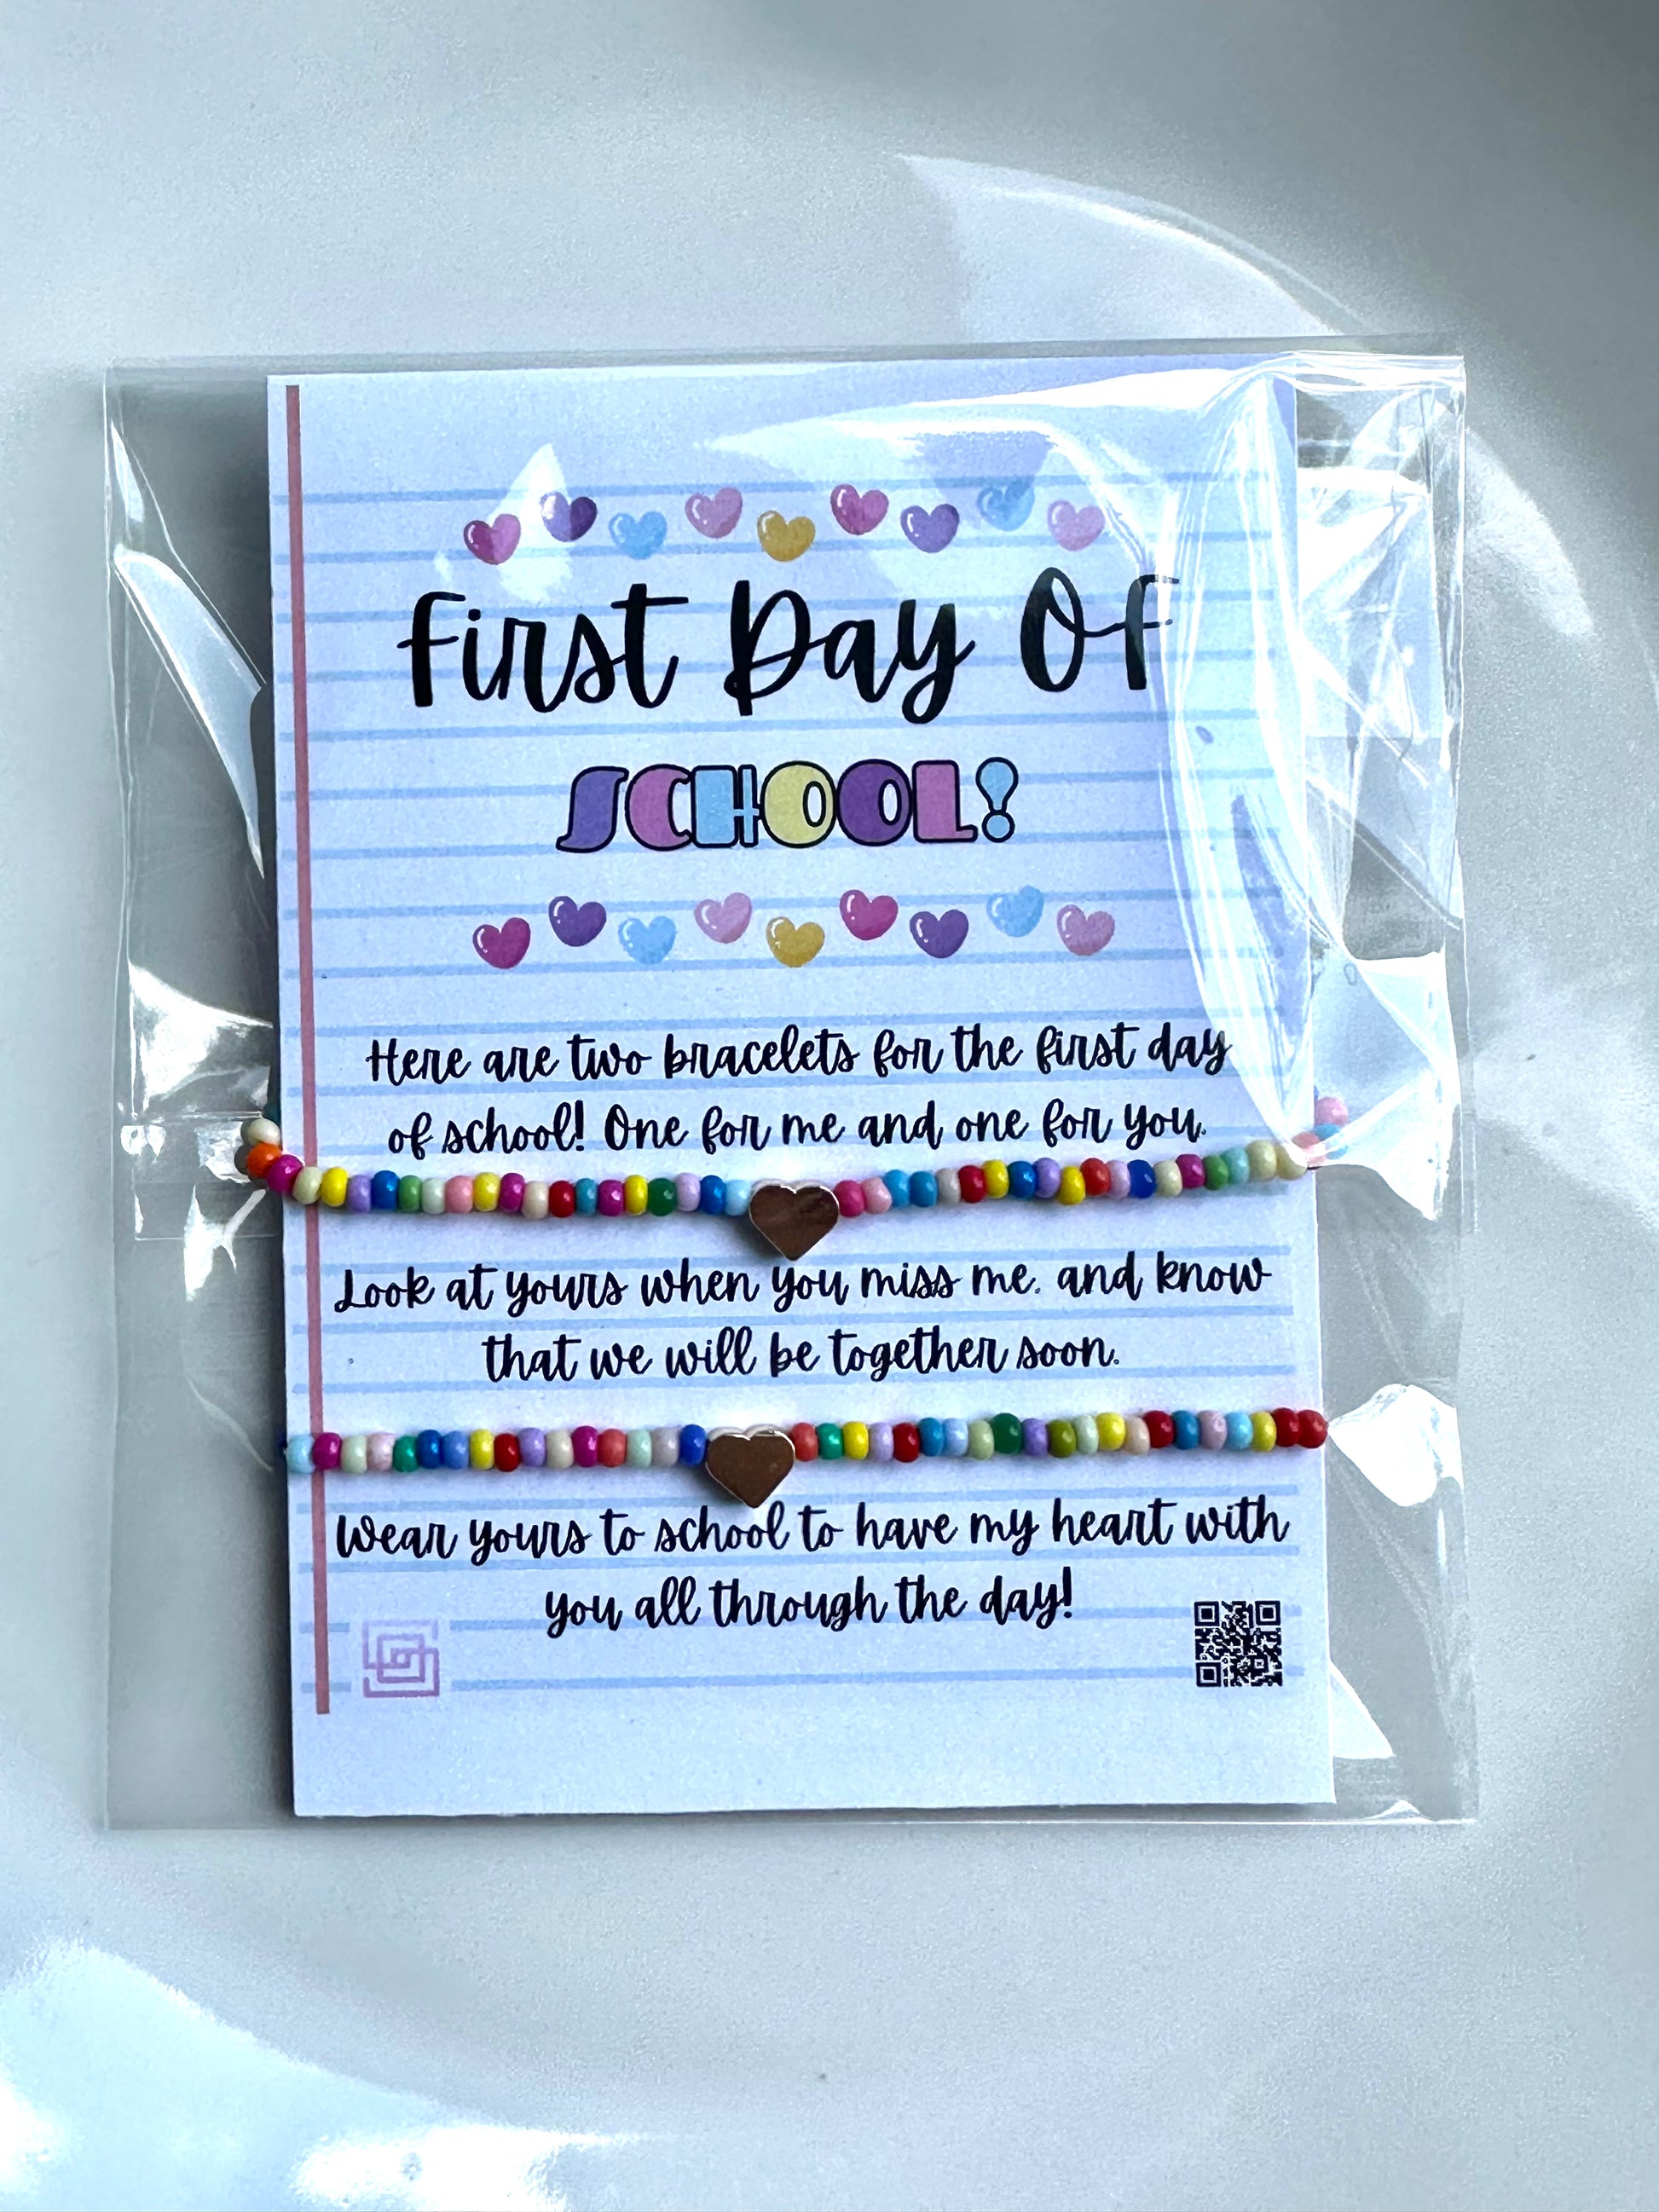 First Day Of
SCHOOL!
Here are two bracelets for the first day
of school! One for me and one for you.
Look at yours when you miss me. and know
that we will be together soon.
Wear yours to school to have my heart with
you all through the day!